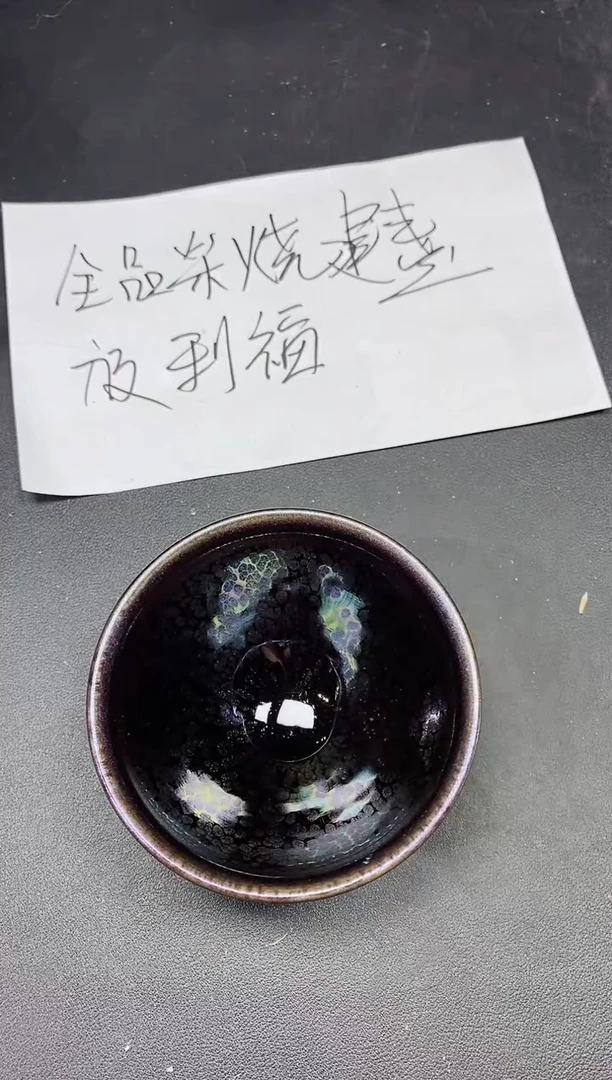 全品柴烧建盏
放利福